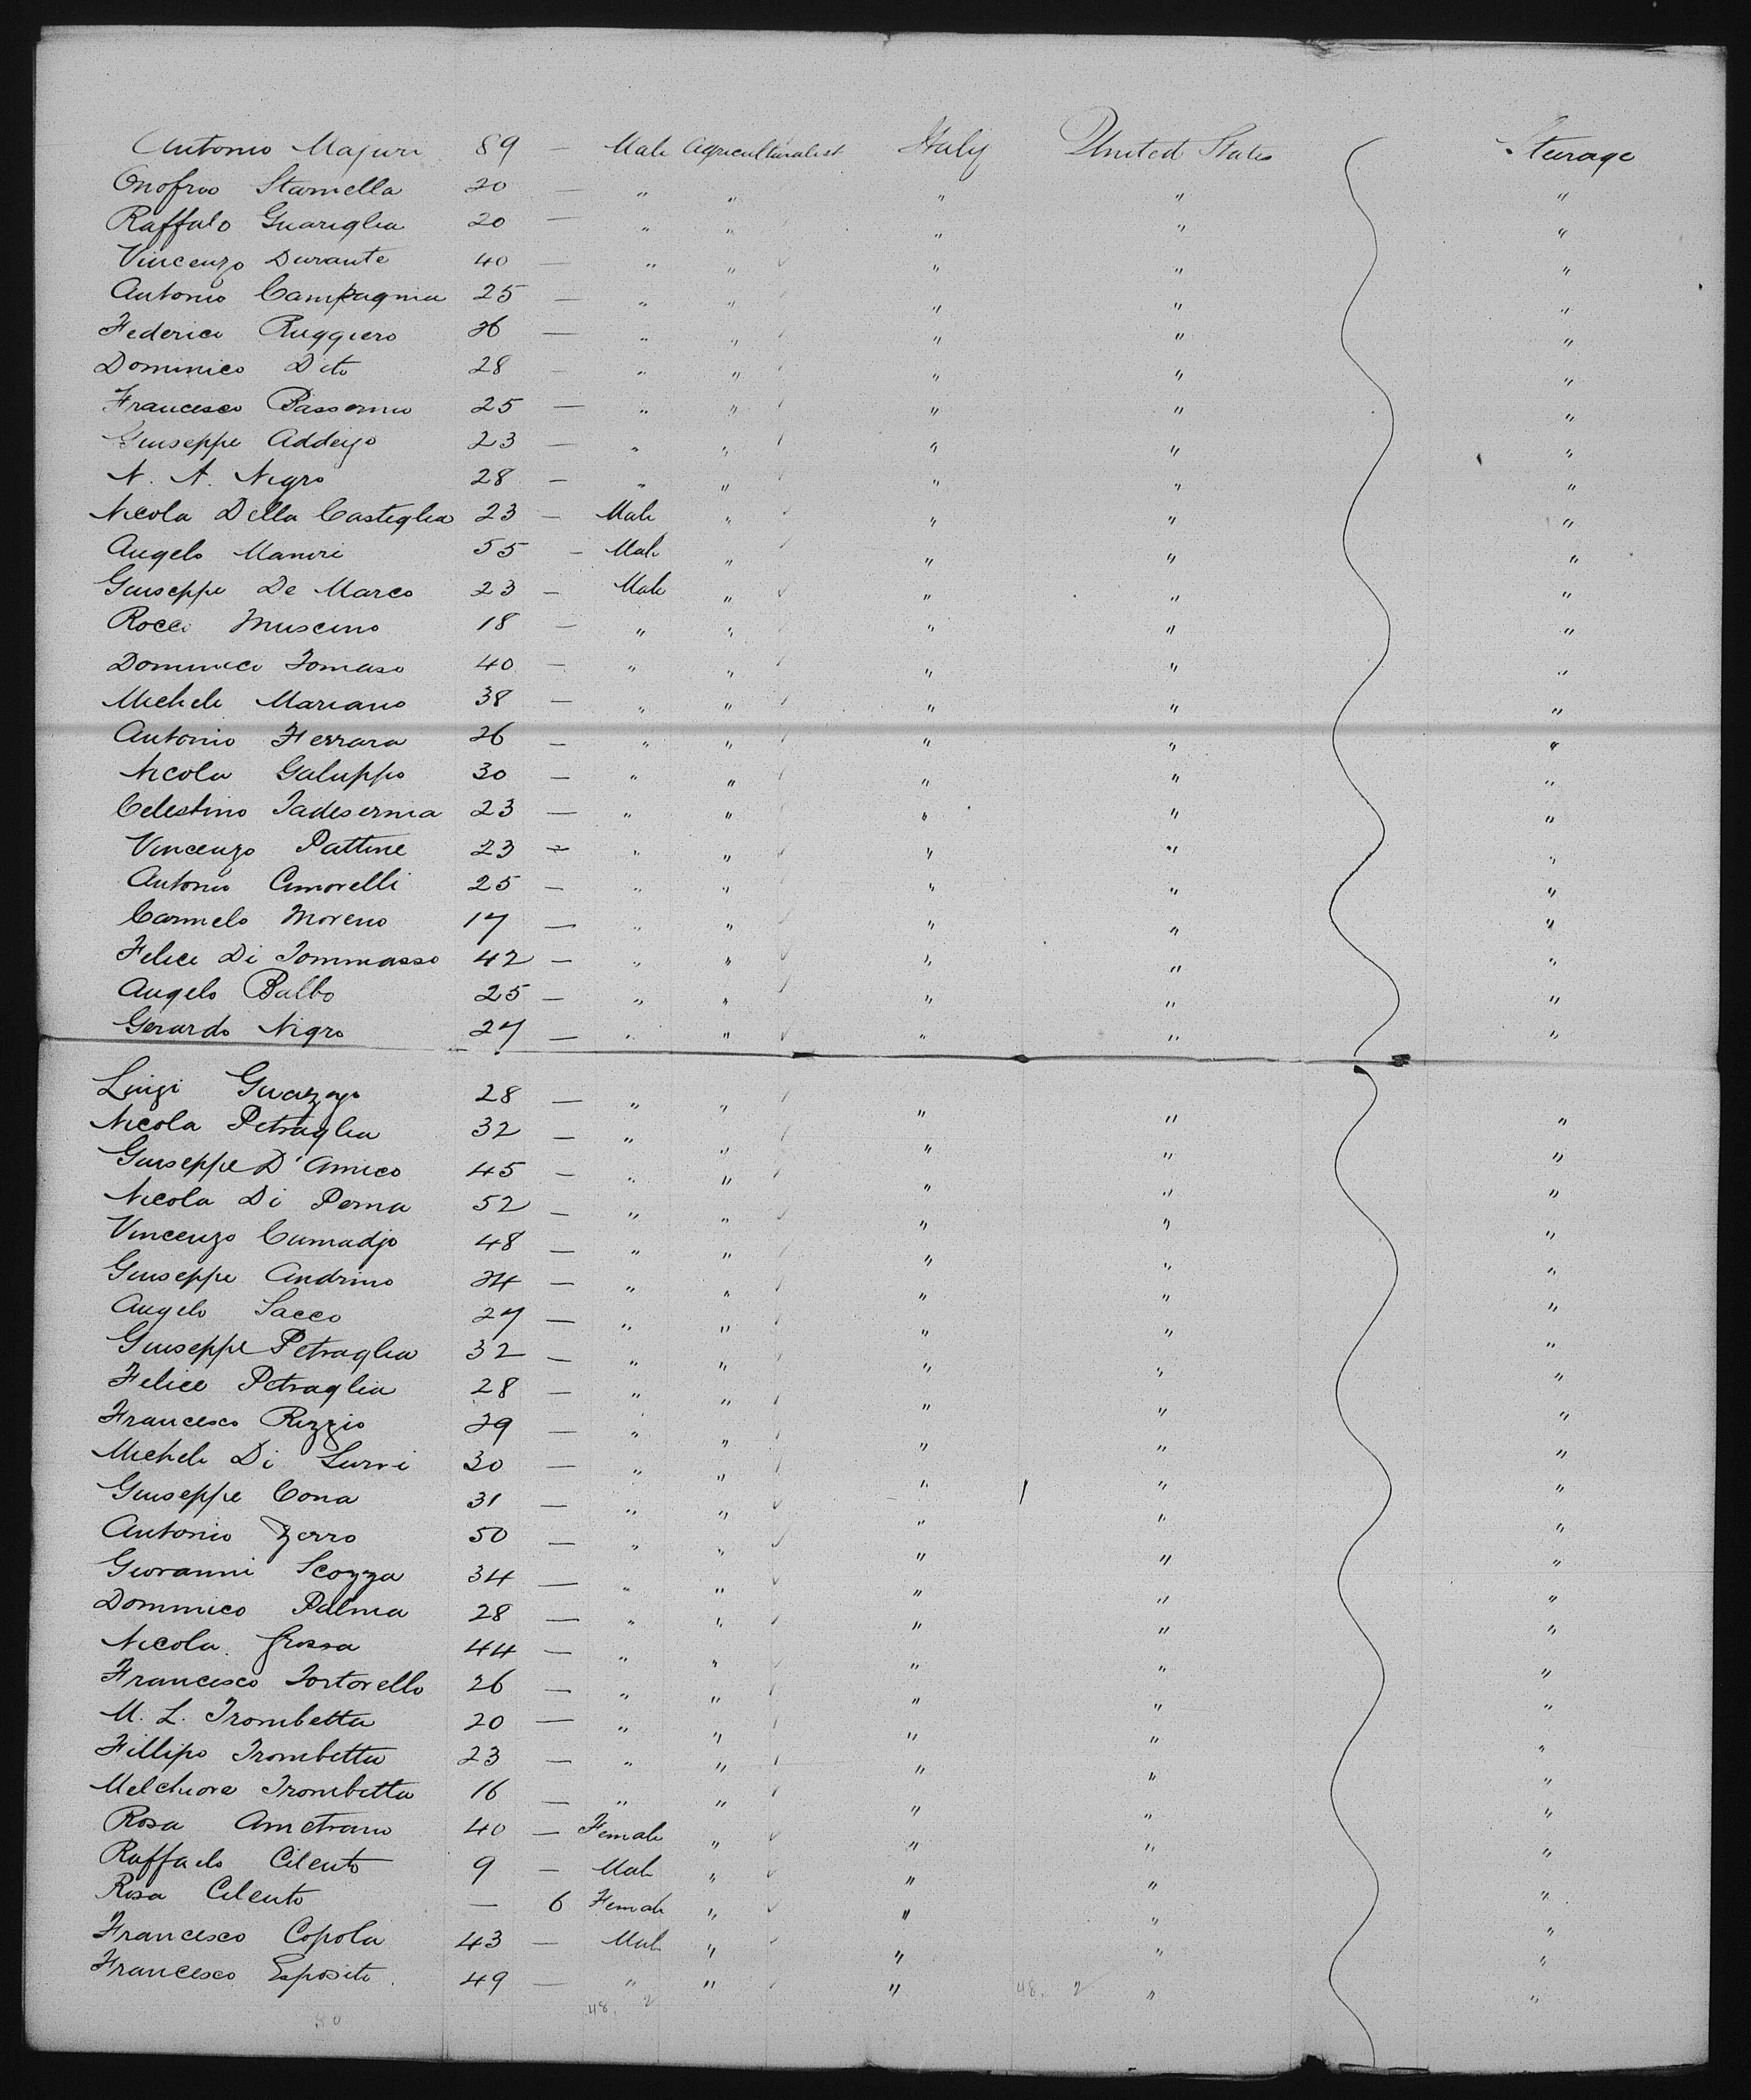 Antonio Majuri 89 — Male Agriculturalist Italy United States Steerage
Onofrio Stamella 20 — " " " " "
Raffalo Guariglia 20 — " " " " "
Vincenzo Durante 40 — " " " " "
Antonio Campagnia 25 — " " " " "
Federico Ruggiero 26 — " " " " "
Dominico Dito 28 — " " " " "
Francesco 25 — " " " " "
Giuseppe 23 — " " " " "
N. A. Nigro 28 — " " " " "
Nicola Della Castiglia 23 — Male " " " "
Angelo 55 — Male " " " "
Giuseppe De Marco 23 — Male " " " "
Rocco Muscino 18 — " " " " "
Dominico Tomaso 40 — " " " " "
Michele Mariano 38 — " " " " "
Antonio Ferrara 26 — " " " " "
Nicola Galuppo 30 — " " " " "
Celestino Jadesernia 23 — " " " " "
Vincenzo Pattine 23 — " " " " "
Antonio Cimorelli 25 — " " " " "
Carmelo Moreno 17 — " " " " "
Felice Di Tommasso 42 — " " " " "
Angelo Balbo 25 — " " " " "
Gerardo Nigro 27 — " " " " "
Luigi 28 — " " " " "
Nicola Petraglia 32 — " " " " "
Giuseppe D'Amico 45 — " " " " "
Nicola Di Perna 52 — " " " " "
Vincenzo 48 — " " " " "
Giuseppe Andrino 24 — " " " " "
Angelo Sacco 27 — " " " " "
Giuseppe Petraglia 32 — " " " " "
Felice Petraglia 28 — " " " " "
Francesco Rizzio 29 — " " " " "
Michele Di 30 — " " " " "
Giuseppe Cona 31 — " " " " "
Antonio Zerro 50 — " " " " "
Giovanni Scozza 34 — " " " " "
Dominico Palma 28 — " " " " "
Nicola Grossa 44 — " " " " "
Francesco Tortorello 26 — " " " " "
M. L. Trombetta 20 — " " " " "
Fillipo Trombetta 23 — " " " " "
Melchiore Trombetta 16 — " " " " "
Rosa Ametrano 40 — Female " " " "
Raffaelo Cilento 9 — Male " " " "
Rosa Cilento — 6 Female " " " "
Francesco Copola 43 — Male " " " "
Francesco Esposito 49 — " " " " "
50 48. 2 48. 2